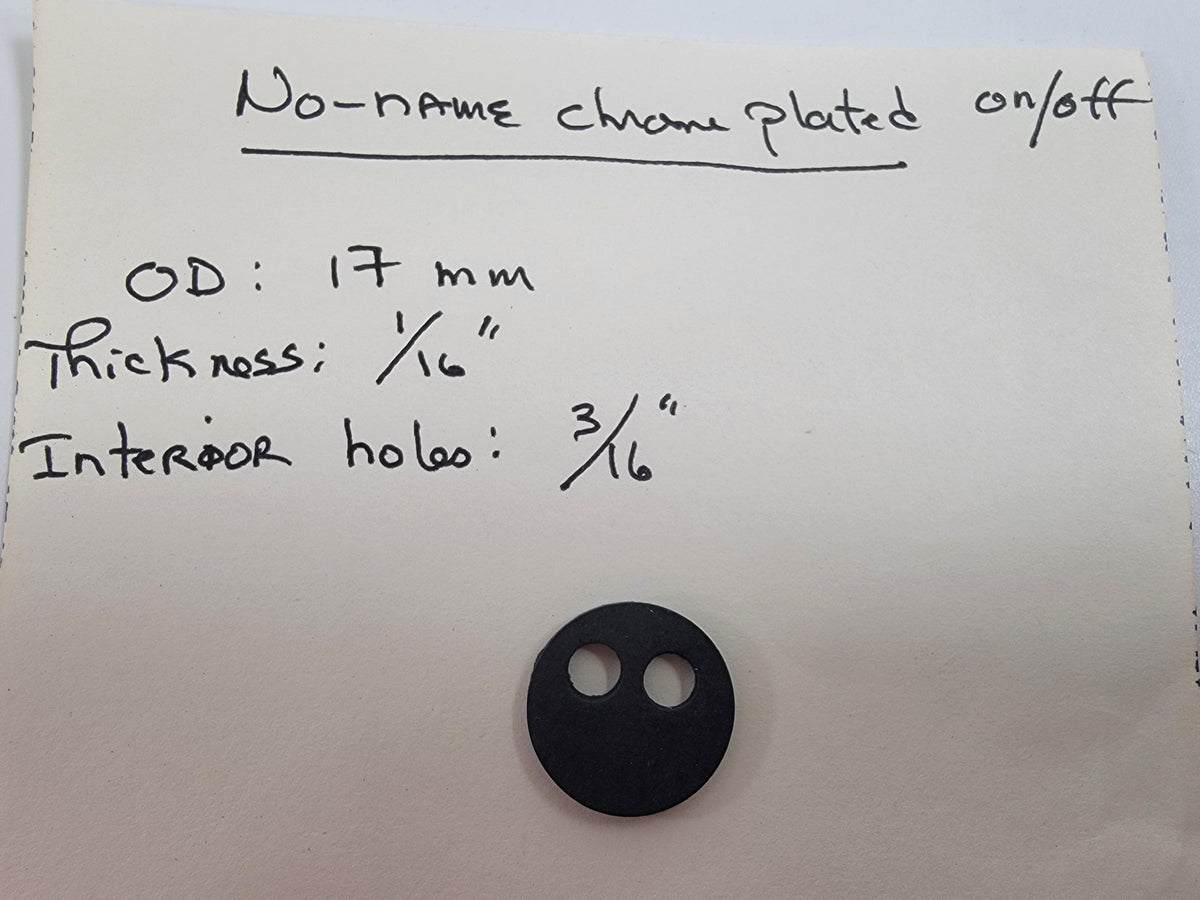 No-name chrome plated on/off
OD: 17 mm
Thickness: 1/16"
Interior holes: 3/16"